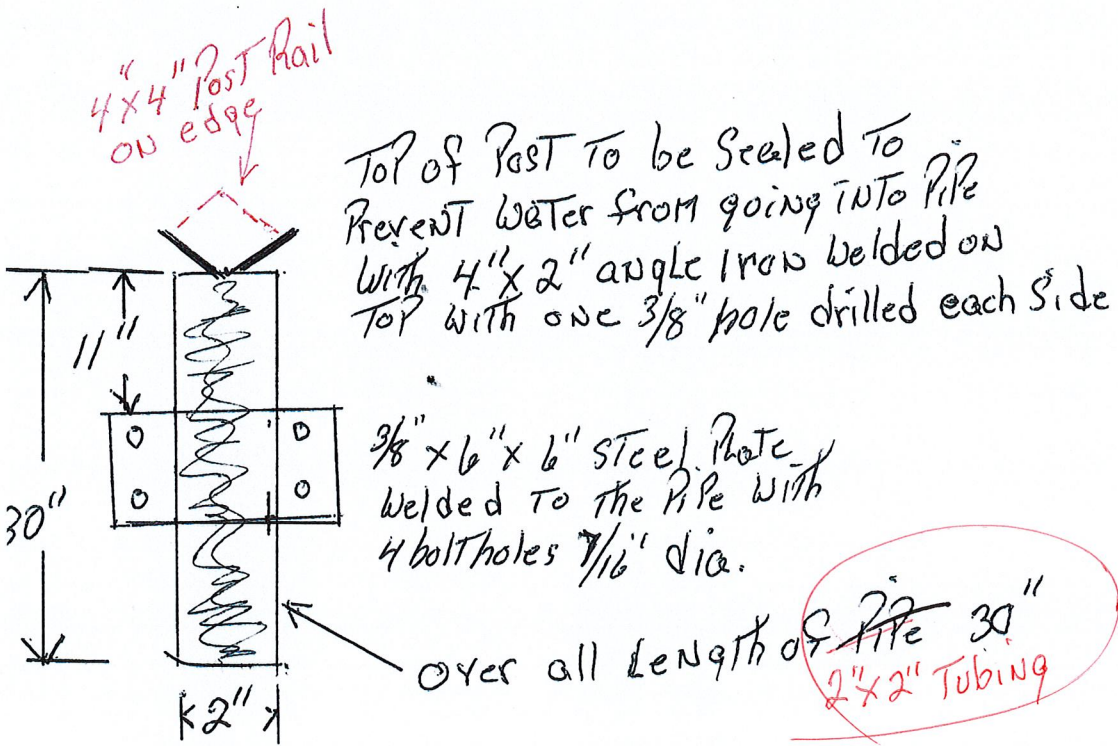 4"x4" Post Rail
ON edge
TOP of Post To be Sealed To
Prevent Water from going into PiPe
With 4"x2" angle Iron Welded on
Top with one 3/8" hole drilled each Side
11"
3/8" x 6" x 6" Steel Plate
Welded To the PiPe with
4 boltholes 7/16" dia.
30"
over all Length of PiPe 30"
2"x2" Tubing
2"